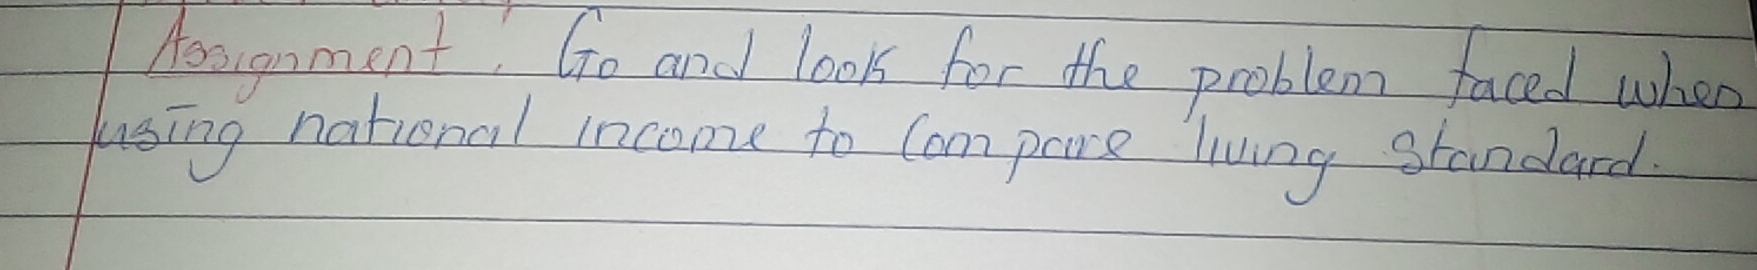 Assignment. Go and look for the problem faced when
using national income to compare living standard.